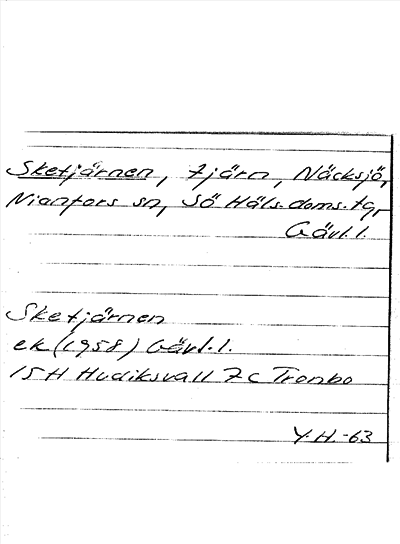 Sketjärnen, tjärn, Näcksjö,
Nianfors sn, Sö Häls. doms. tg,
Gävl. l.
Sketjärnen
ek (1958) Gävl. l.
15 H Hudiksvall 7c Tronbo
Y. H. -63